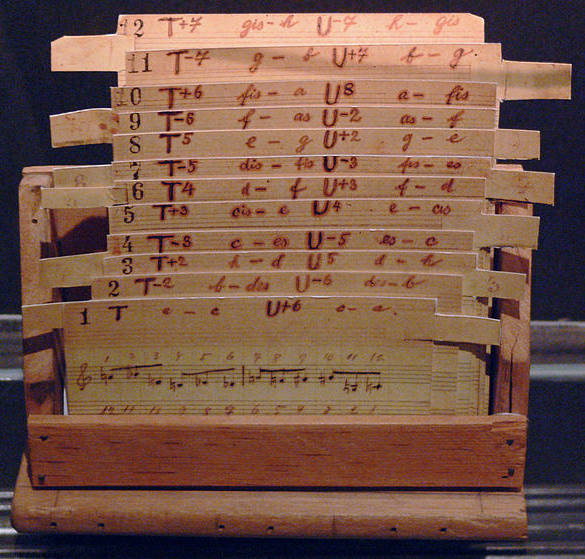 12 T+7 gis - h U-7 h - gis
11 T-7 g - b U+7 b - g
10 T+6 fis - a U8 a - fis
9 T-6 f - as U-2 as - f
8 T5 e - g U+2 g - e
7 T-5 dis - fis U-3 - es
6 T4 d - f U+3 f - d
5 T+3 cis - e U4 e - cis
4 T-3 c - es U-5 es - c
3 T+2 h - d U5 d - h
2 T-2 b - des U-6 des - b
1 T a - c U+6 c - a
1 2 3 4 5 6 7 8 9 10 11 12
12 11 10 9 8 7 6 5 4 3 2 1